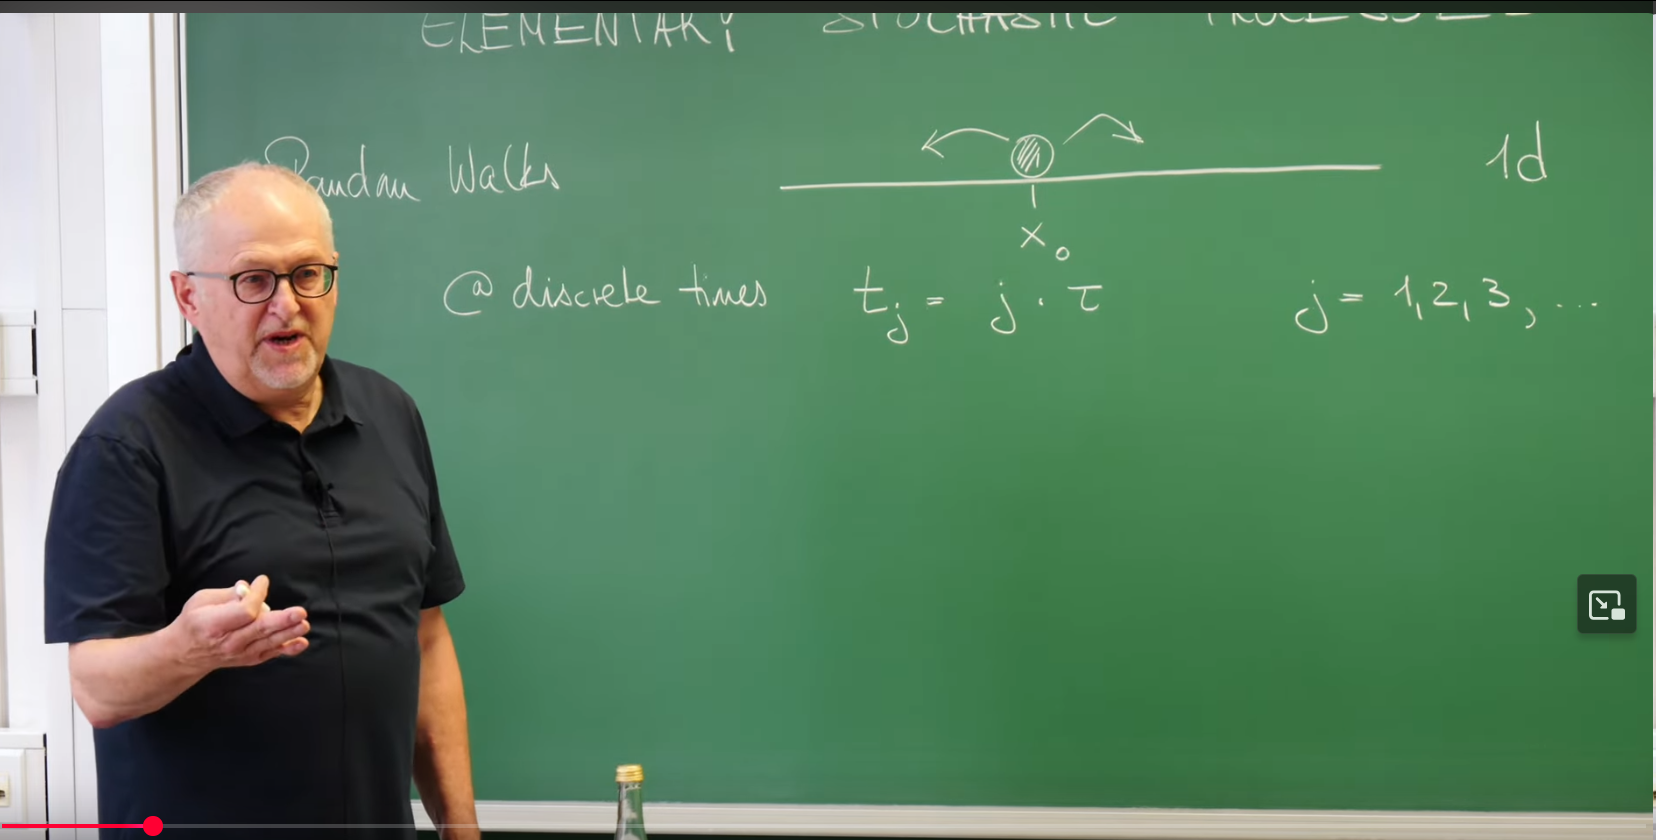 ELEMENTARY STOCHASTIC PROCESSES
Random Walks
1d
x₀
@ discrete times t_j = j · τ j = 1, 2, 3, ...